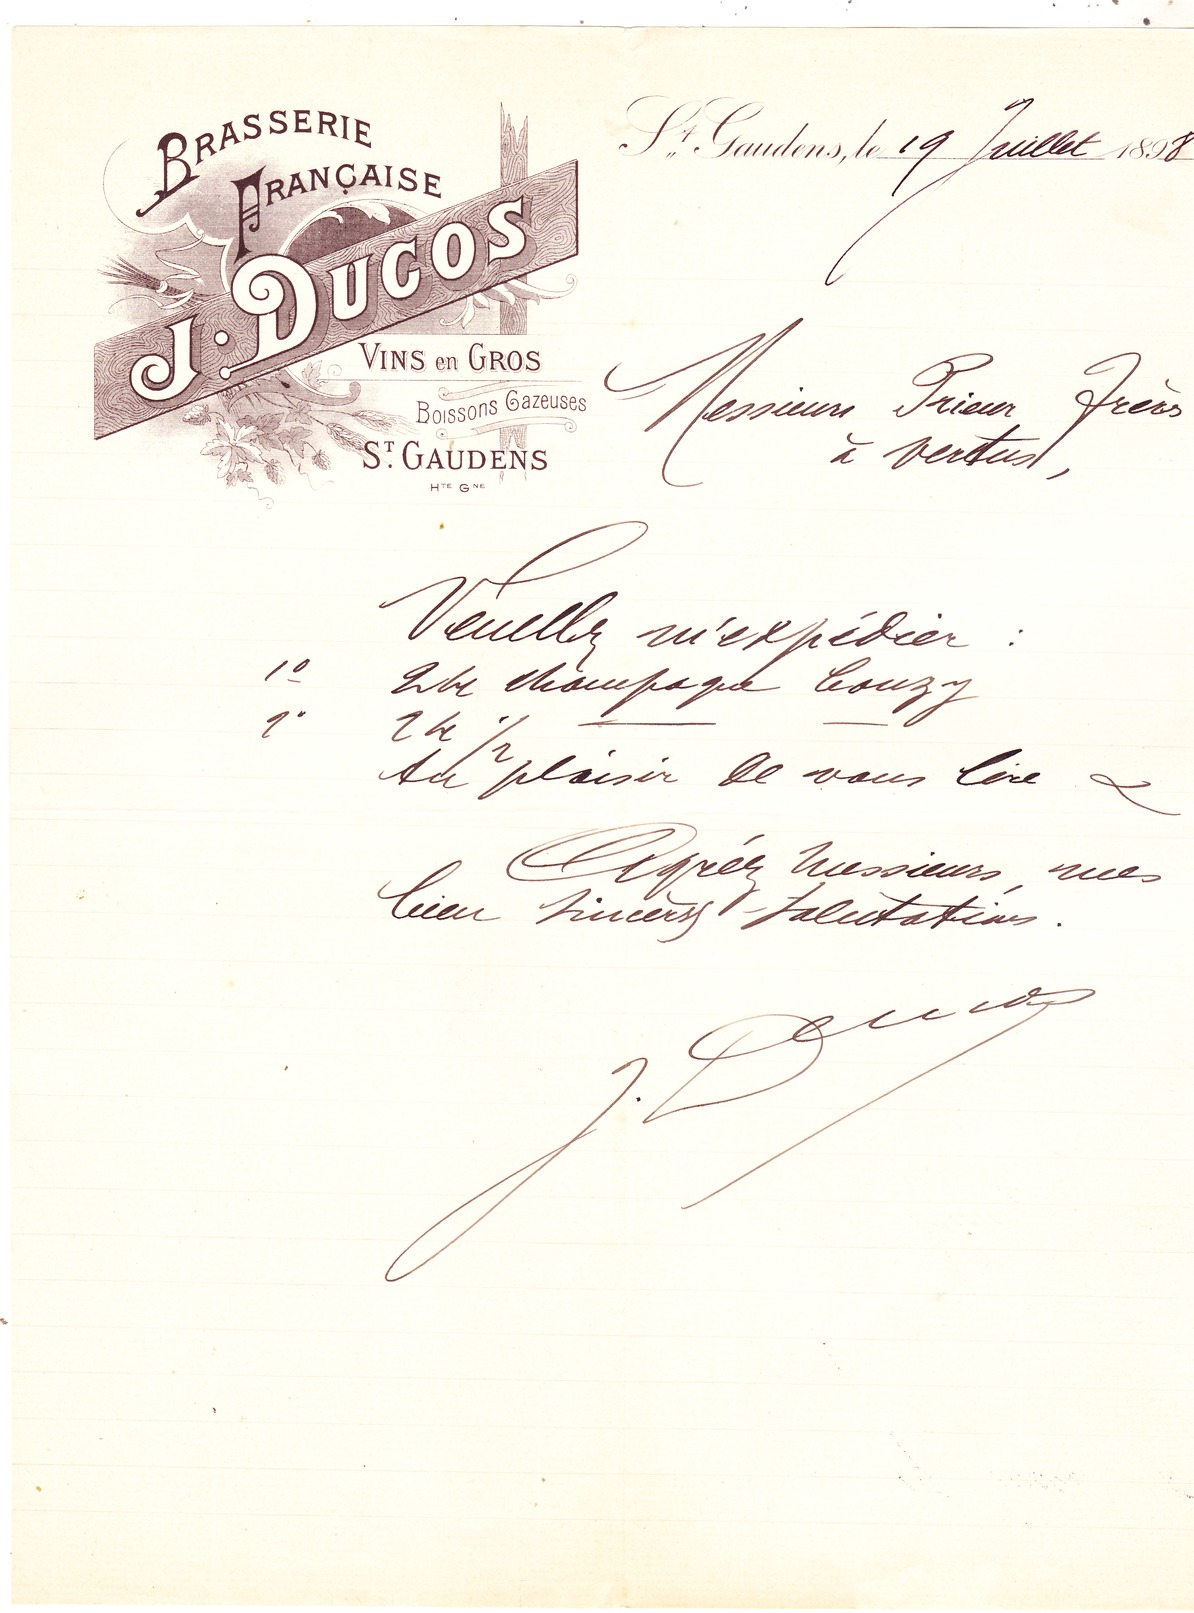 BRASSERIE
FRANÇAISE
J. DUCOS
VINS en GROS
Boissons Gazeuses
ST. GAUDENS
HTE GNE
St. Gaudens, le 19 Juillet 1898
Messieurs Prieur Frères
à Vertus,
Veuillez m'expédier :
1° champagne Bouzy
2° 1/2
Au plaisir de vous lire
Agréez Messieurs, mes
bien sincères salutations.
J. Ducos